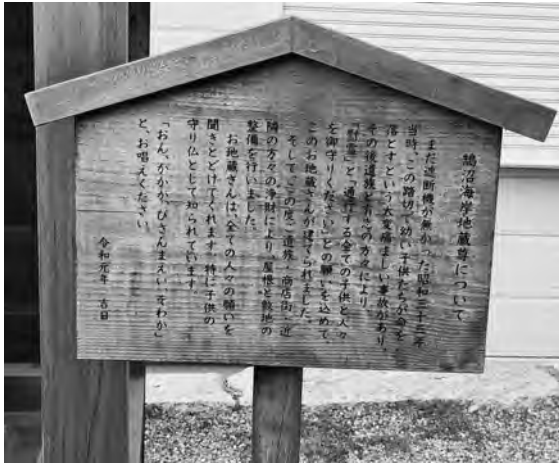 鵠沼海岸地蔵尊について
まだ遮断機が無かった昭和三十三年
当時、この踏切で幼い子供たちが命を
落とすという大変痛ましい事故があり、
その後遺族と有志の方々により
「慰霊」と「通行する全ての子供と人々
を御守りください」との願いを込めて、
このお地蔵さんが建てられました。
そして、この度ご遺族・商店街・近
隣の方々の浄財により、屋根と敷地の
整備を行いました。
お地蔵さんは、全ての人々の願いを
聞きとどけてくれます。特に子供の
守り仏として知られています。
「おん、かかか、びさんまえい、そわか」
と、お唱えください。
令和元年 吉日